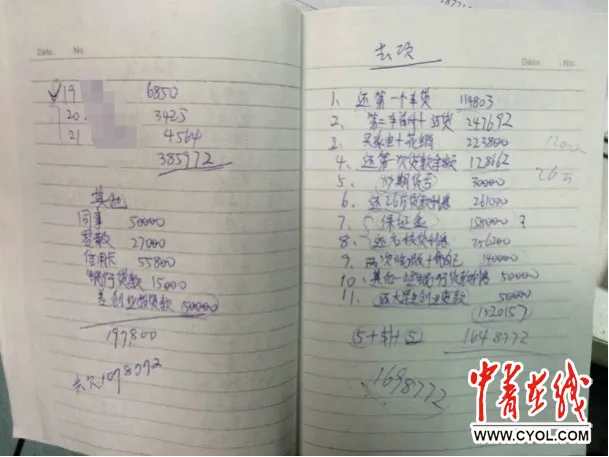 Date. No.
19 6850
20. 3425
21 4564
385972
其他
同事 50000
零散 27000
信用卡 55800
银行贷款 15000
差创业担贷款 50000
197800
去欠1098772
Date. No.
去项
1、还第一个车贷 119803
2、第二车首付+还贷 247692
3、买家电+花销 223800
4、还第一次贷款余额 128662
5、炒期货亏 30000
6、还26万贷款利息 261000
7、保证金 158000
8、还无抵贷利息 256200
9、两次 140000
10、其他一些银行贷款利息 50000
11、还大学生创业贷款 50000
26万
(5+5)+5 1648772
1698772
中青在线
WWW.CYOL.COM